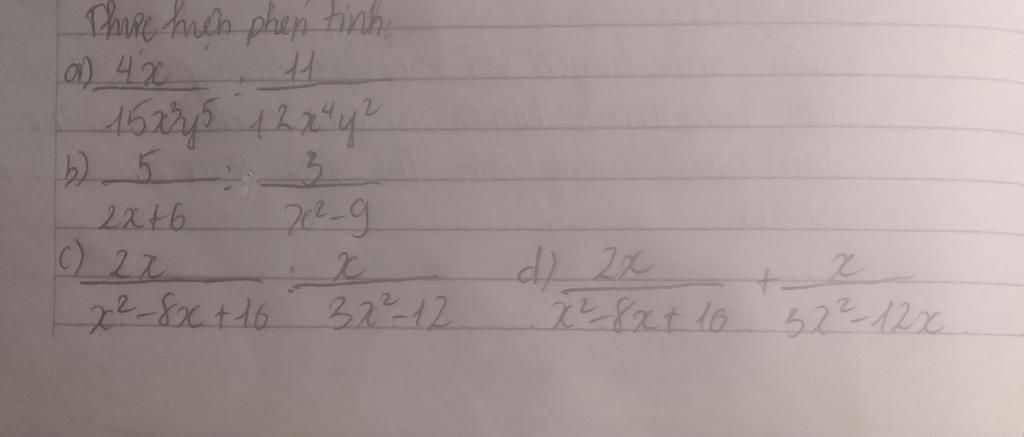 Thực hiện phép tính:
a) 4x/15x³y⁵ : 11/12x⁴y²
b) 5/2x+6 : 3/x²-9
c) 2x/x²-8x+16 : x/3x²-12 d) 2x/x²-8x+16 + x/3x²-12x